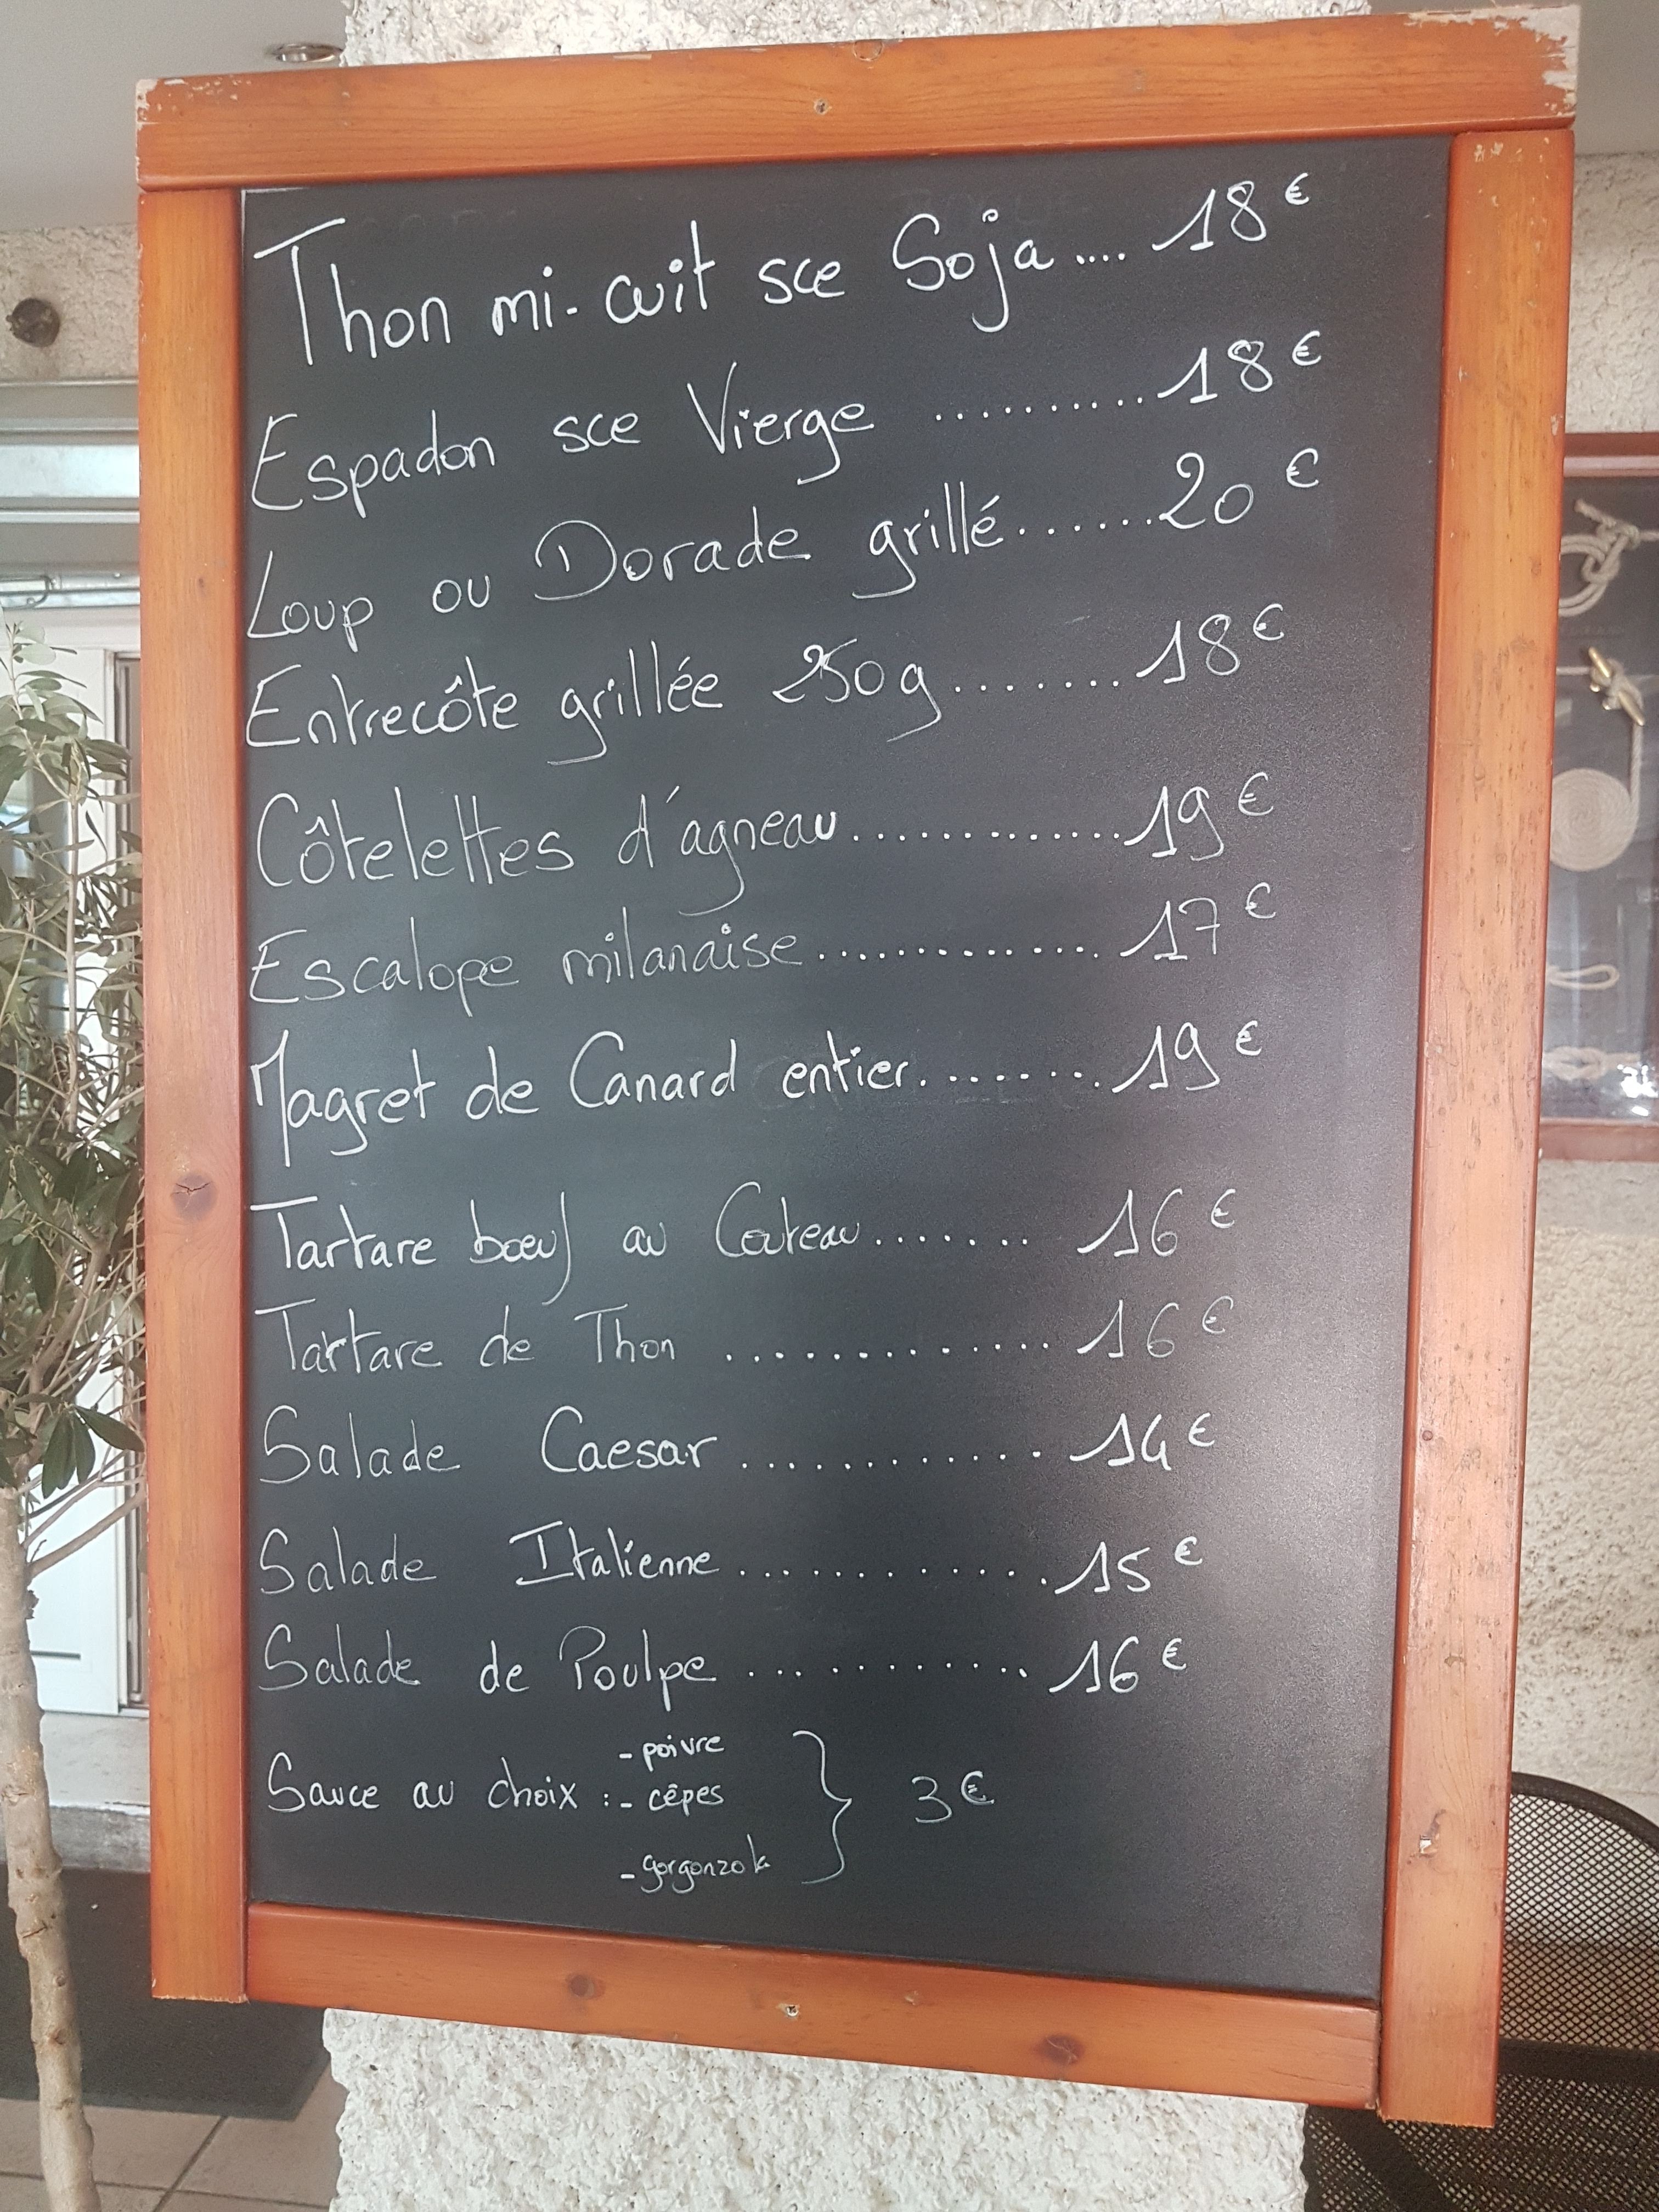 Thon mi-cuit sce Soja .... 18€
Espadon sce Vierge ........... 18€
Loup ou Dorade grillé ....... 20€
Entrecôte grillée 250g ........ 18€
Côtelettes d'agneau ............. 19€
Escalope milanaise .............. 17€
Magret de Canard entier ........ 19€
Tartare bœuf au Couteau ....... 16€
Tartare de Thon ............. 16€
Salade Caesar ............ 14€
Salade Italienne ............ 15€
Salade de Poulpe ............ 16€
- poivre
Sauce au choix : - cêpes } 3€
- gorgonzola